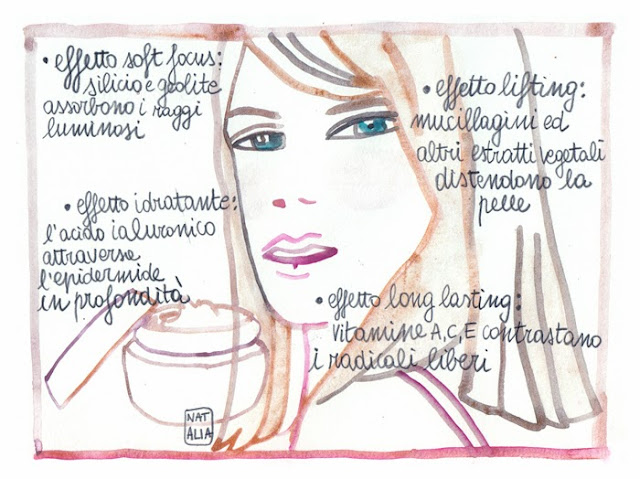 • effetto soft focus:
silicio e zeolite
assorbono i raggi
luminosi
• effetto lifting:
mucillagini ed
altri estratti vegetali
distendono la
pelle
• effetto idratante:
l'acido ialuronico
attraversa
l'epidermide
in profondità
• effetto long lasting:
vitamine A,C,E contrastano
i radicali liberi
NAT
ALIA